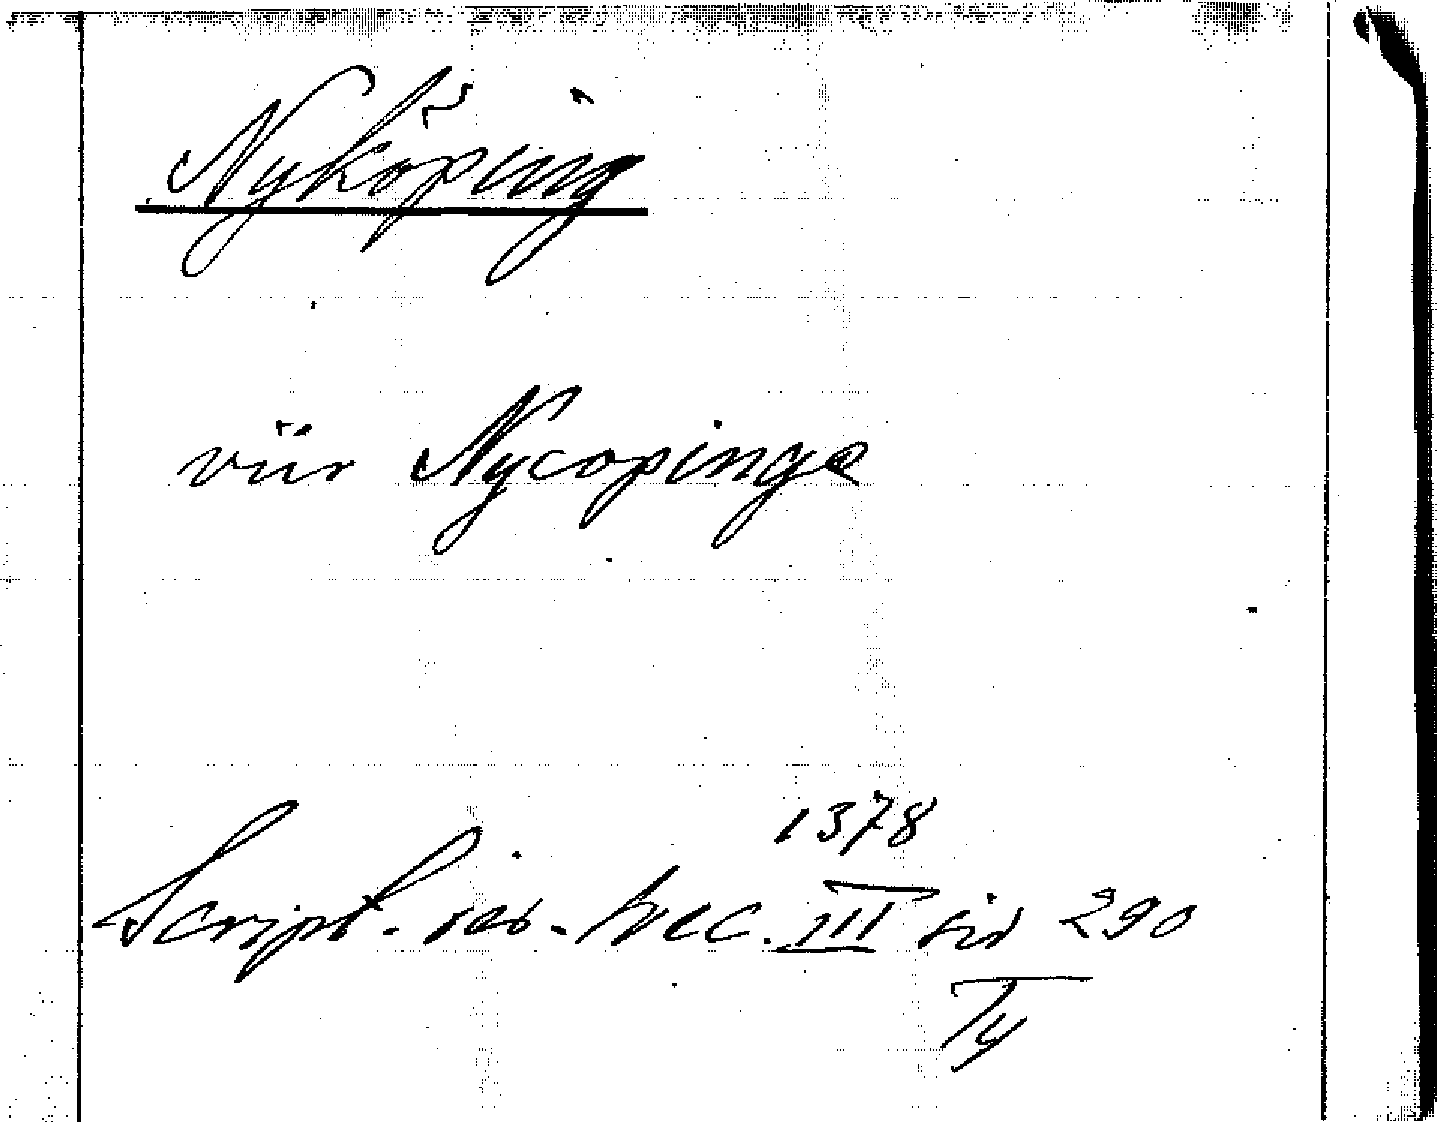 Nyköping
vür Nycopinge
1378
Script. rer. svec. III sid 290
Ty